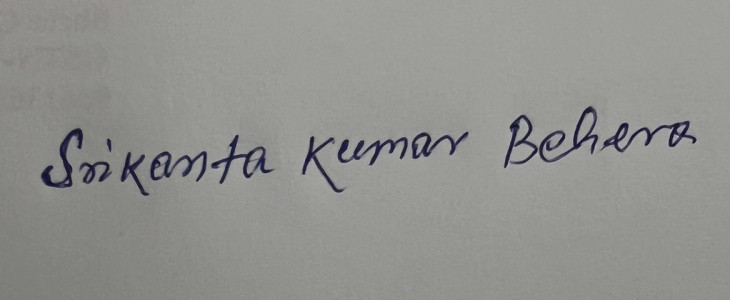 Srikanta Kumar Behera